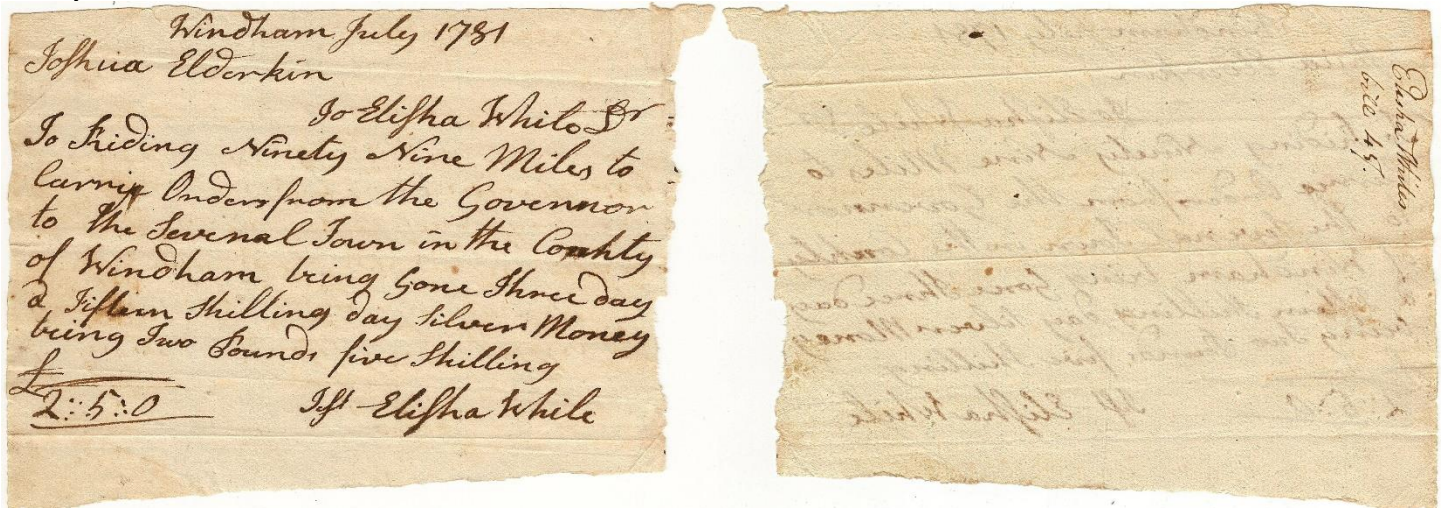 Windham July 1781
Joshua Elderkin
To Elisha White Dr
To Riding Ninety Nine Miles to
Carry Orders from the Governor
to the Several Town in the County
of Windham being Gone Three day
a Fifteen Shilling day Silver Money
being Two Pounds five Shilling
£
2::5::0 Elisha White
Elisha Whites
bill 45/